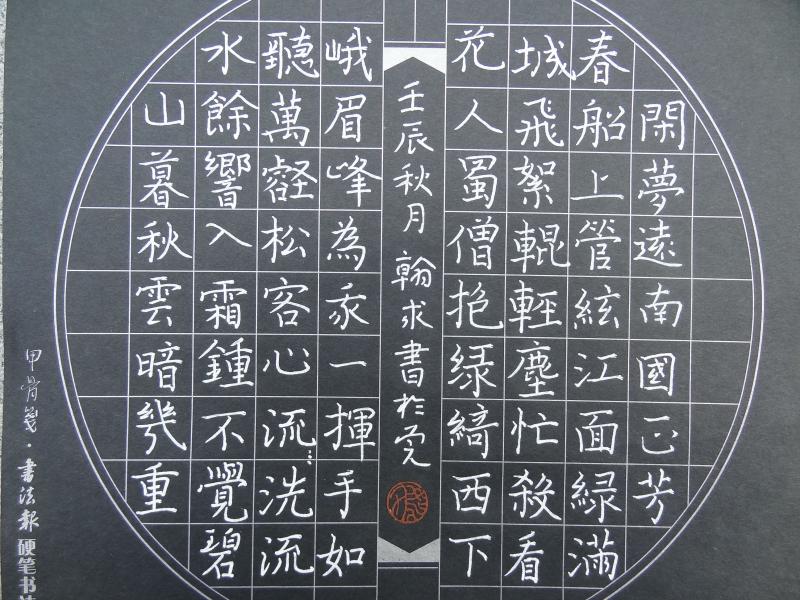 閑夢遠南國正芳
春船上管絃江面綠滿
城飛絮輥輕塵忙殺看
花人蜀僧抱绿綺西下
壬辰秋月翰求書於
峨眉峰為我一揮手如
聽萬壑松客心流洗流
水餘響入霜鍾不覺碧
山暮秋雲暗幾重
甲骨箋·書法報硬笔书